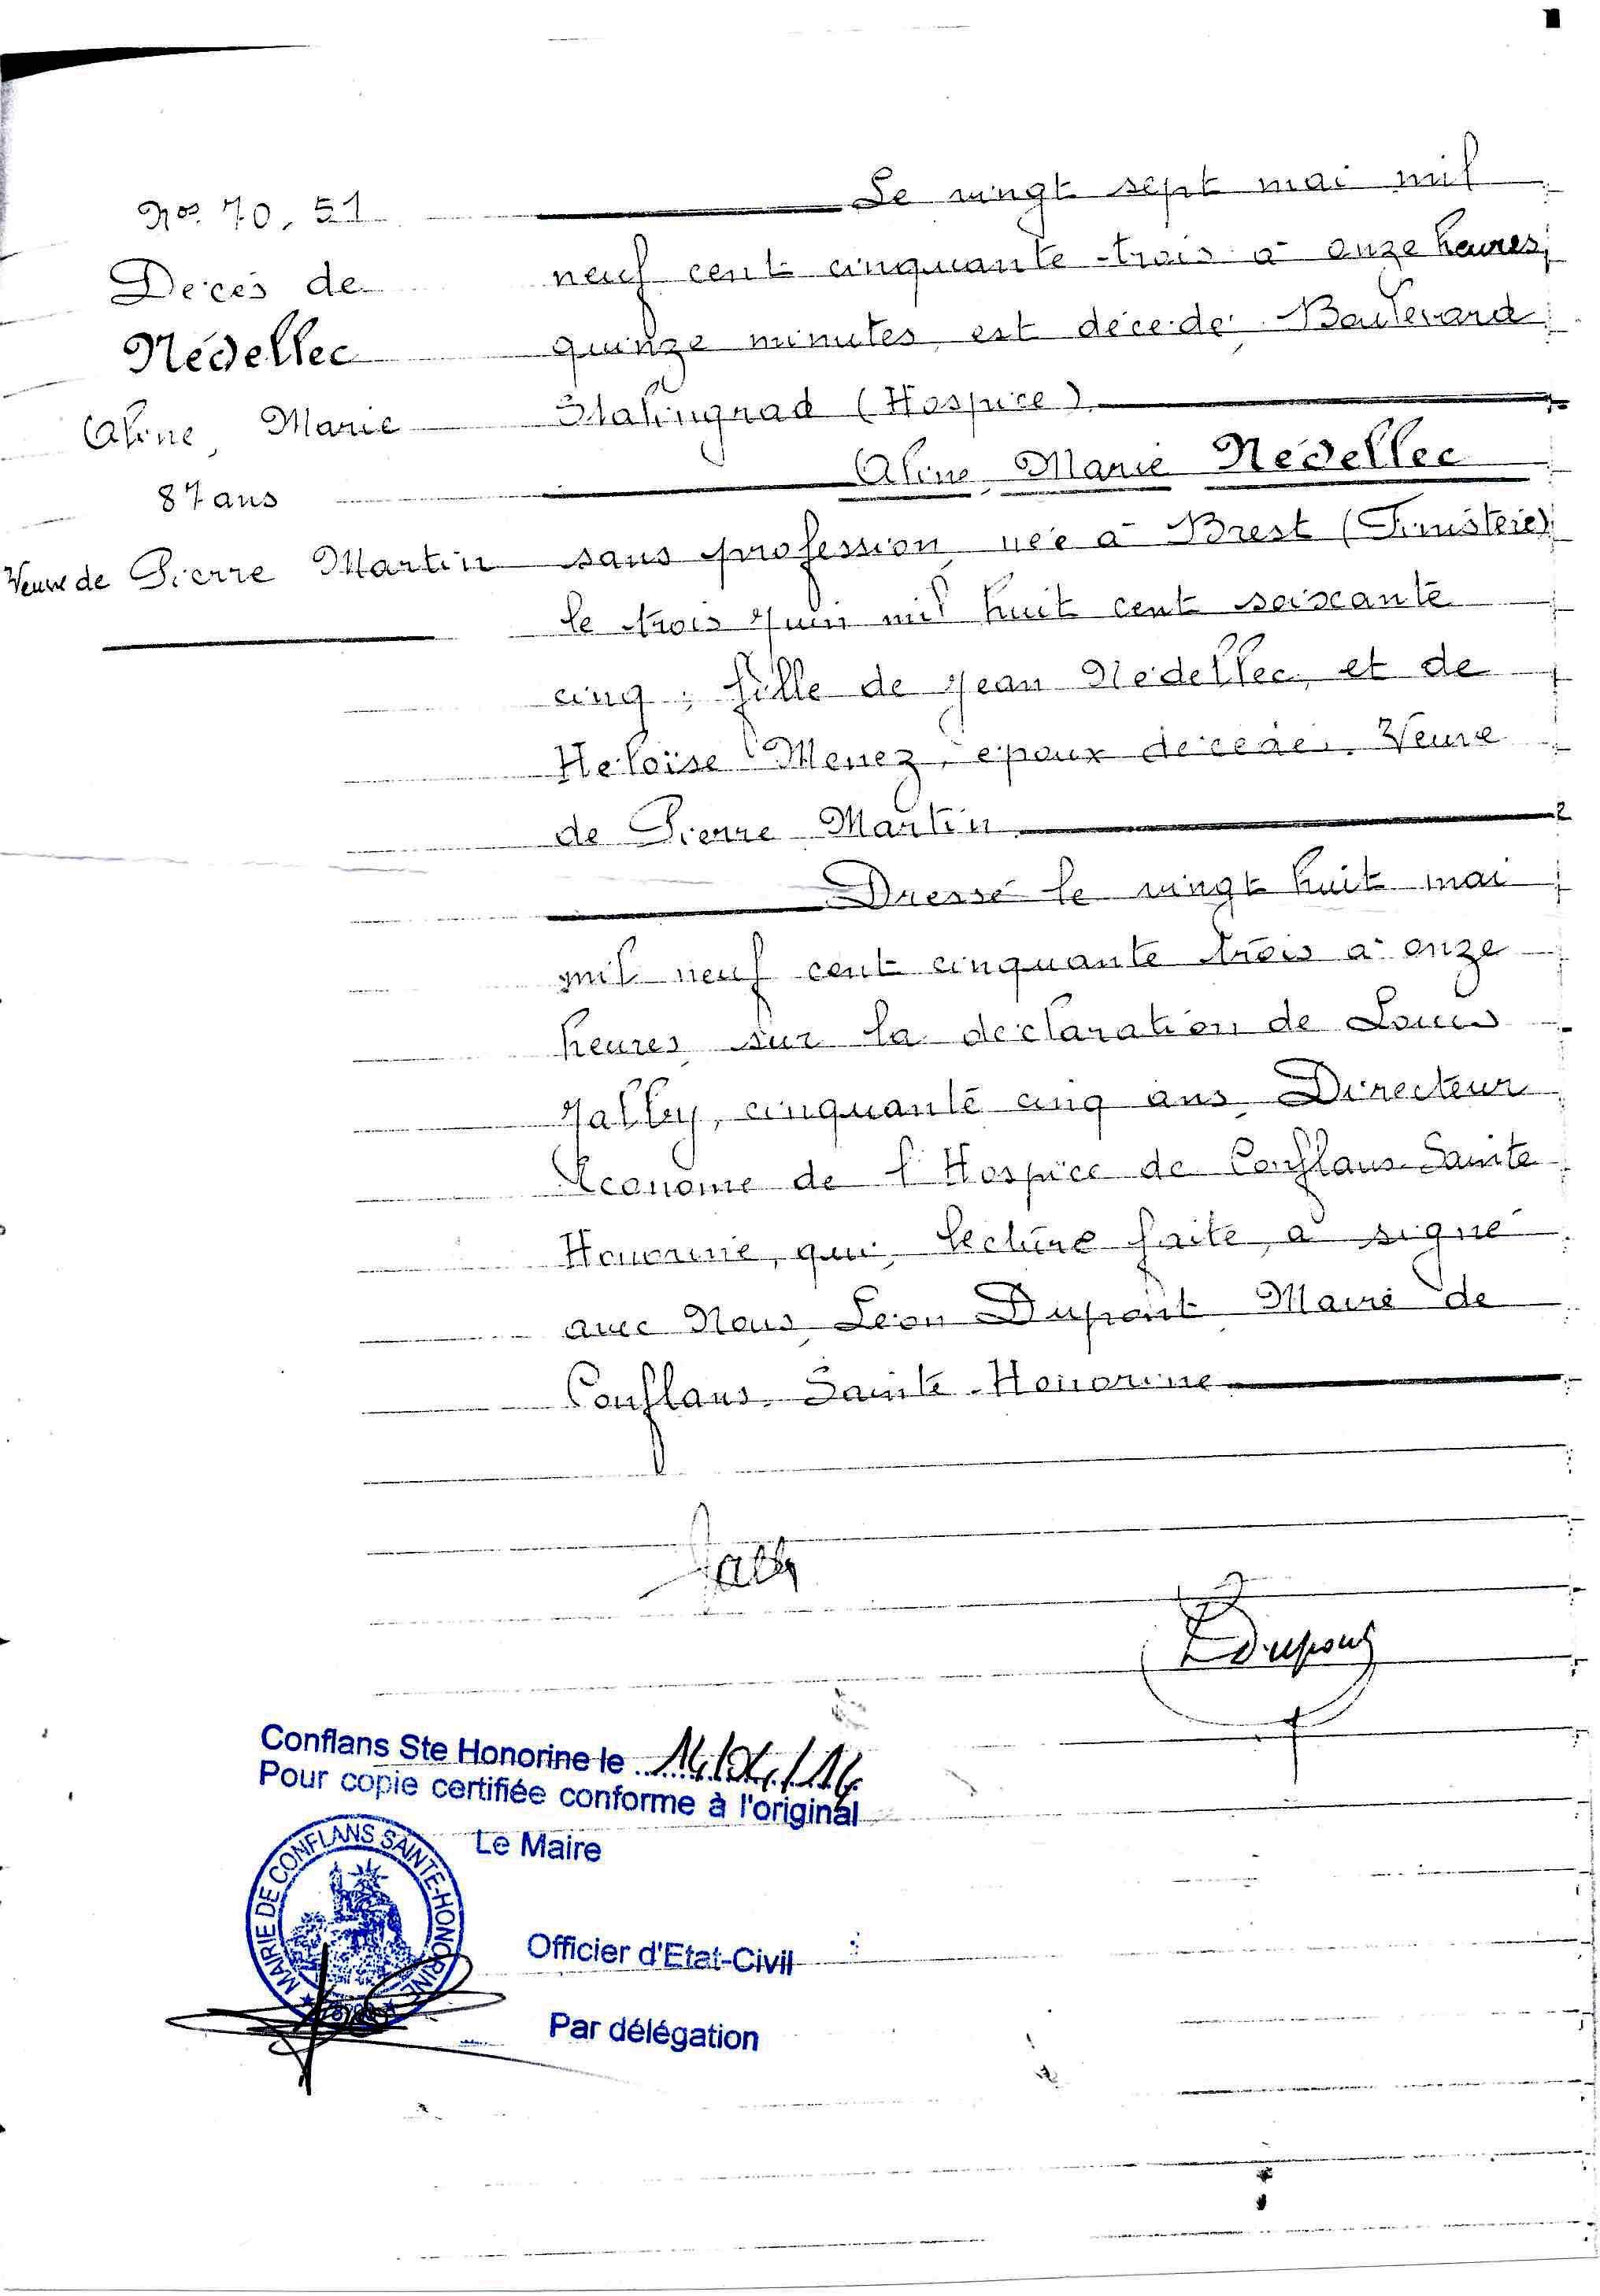 Nos. 70, 51
Décès de
Nédellec
Aline, Marie
87 ans
Veuve de Pierre Martin
Le vingt sept mai mil
neuf cent cinquante-trois à onze heures,
quinze minutes, est décédé, Boulevard
Stalingrad (Hospice)
Aline, Marie Nédellec
sans profession, née à Brest (Finistère)
le trois Juin mil huit cent soixante
cinq ; fille de Jean Nédellec, et de
Héloïse Menez, époux décédés. Veuve
de Pierre Martin
Dressé le vingt huit mai
mil neuf cent cinquante trois à onze
heures, sur la déclaration de Louis
Jalley, cinquante cinq ans, Directeur
Econome de l'Hospice de Conflans-Sainte
Honorine, qui, lecture faite, a signé
avec Nous, Léon Dupont, Maire de
Conflans-Sainte-Honorine
LDupont
Conflans Ste Honorine le 14/04/14
Pour copie certifiée conforme à l'original
Le Maire
MAIRIE DE CONFLANS SAINTE-HONORINE
Officier d'Etat-Civil
Par délégation